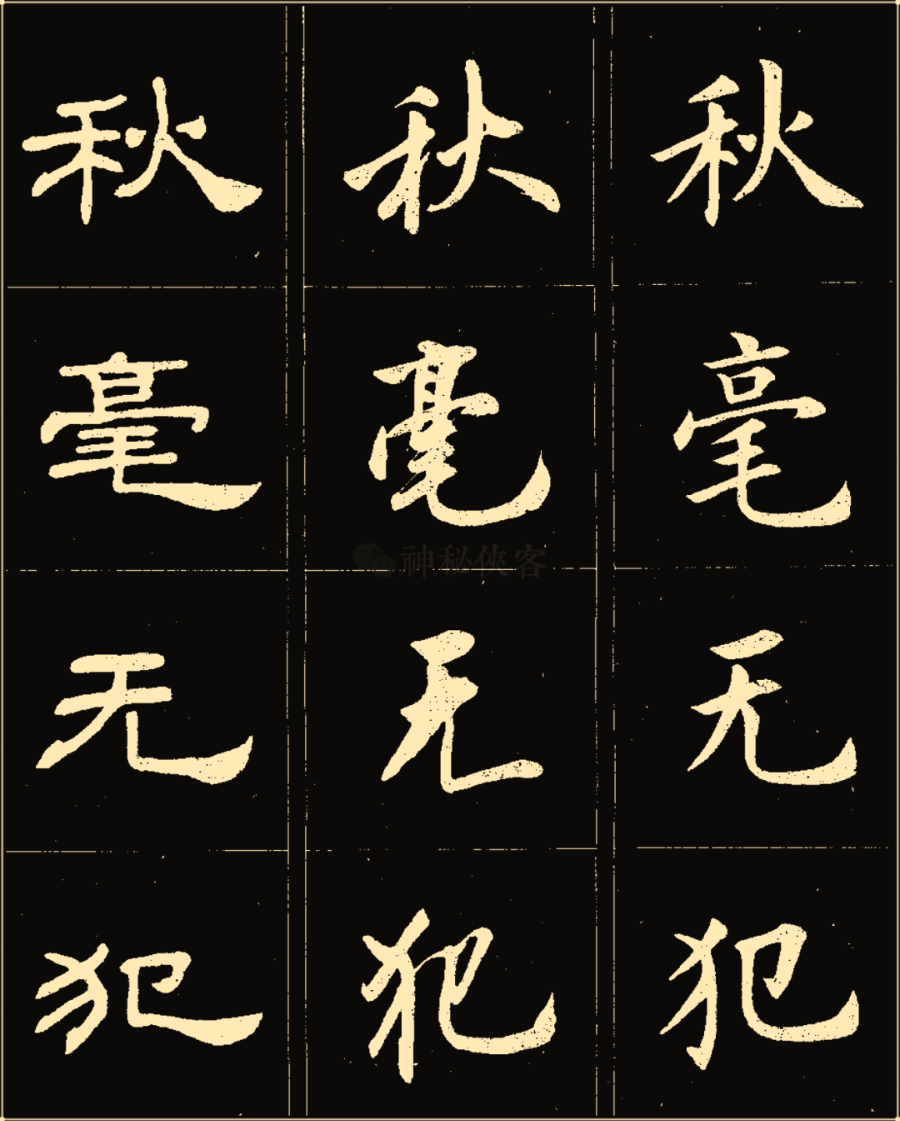 秋毫无犯
秋毫无犯
秋毫无犯
神秘侠客